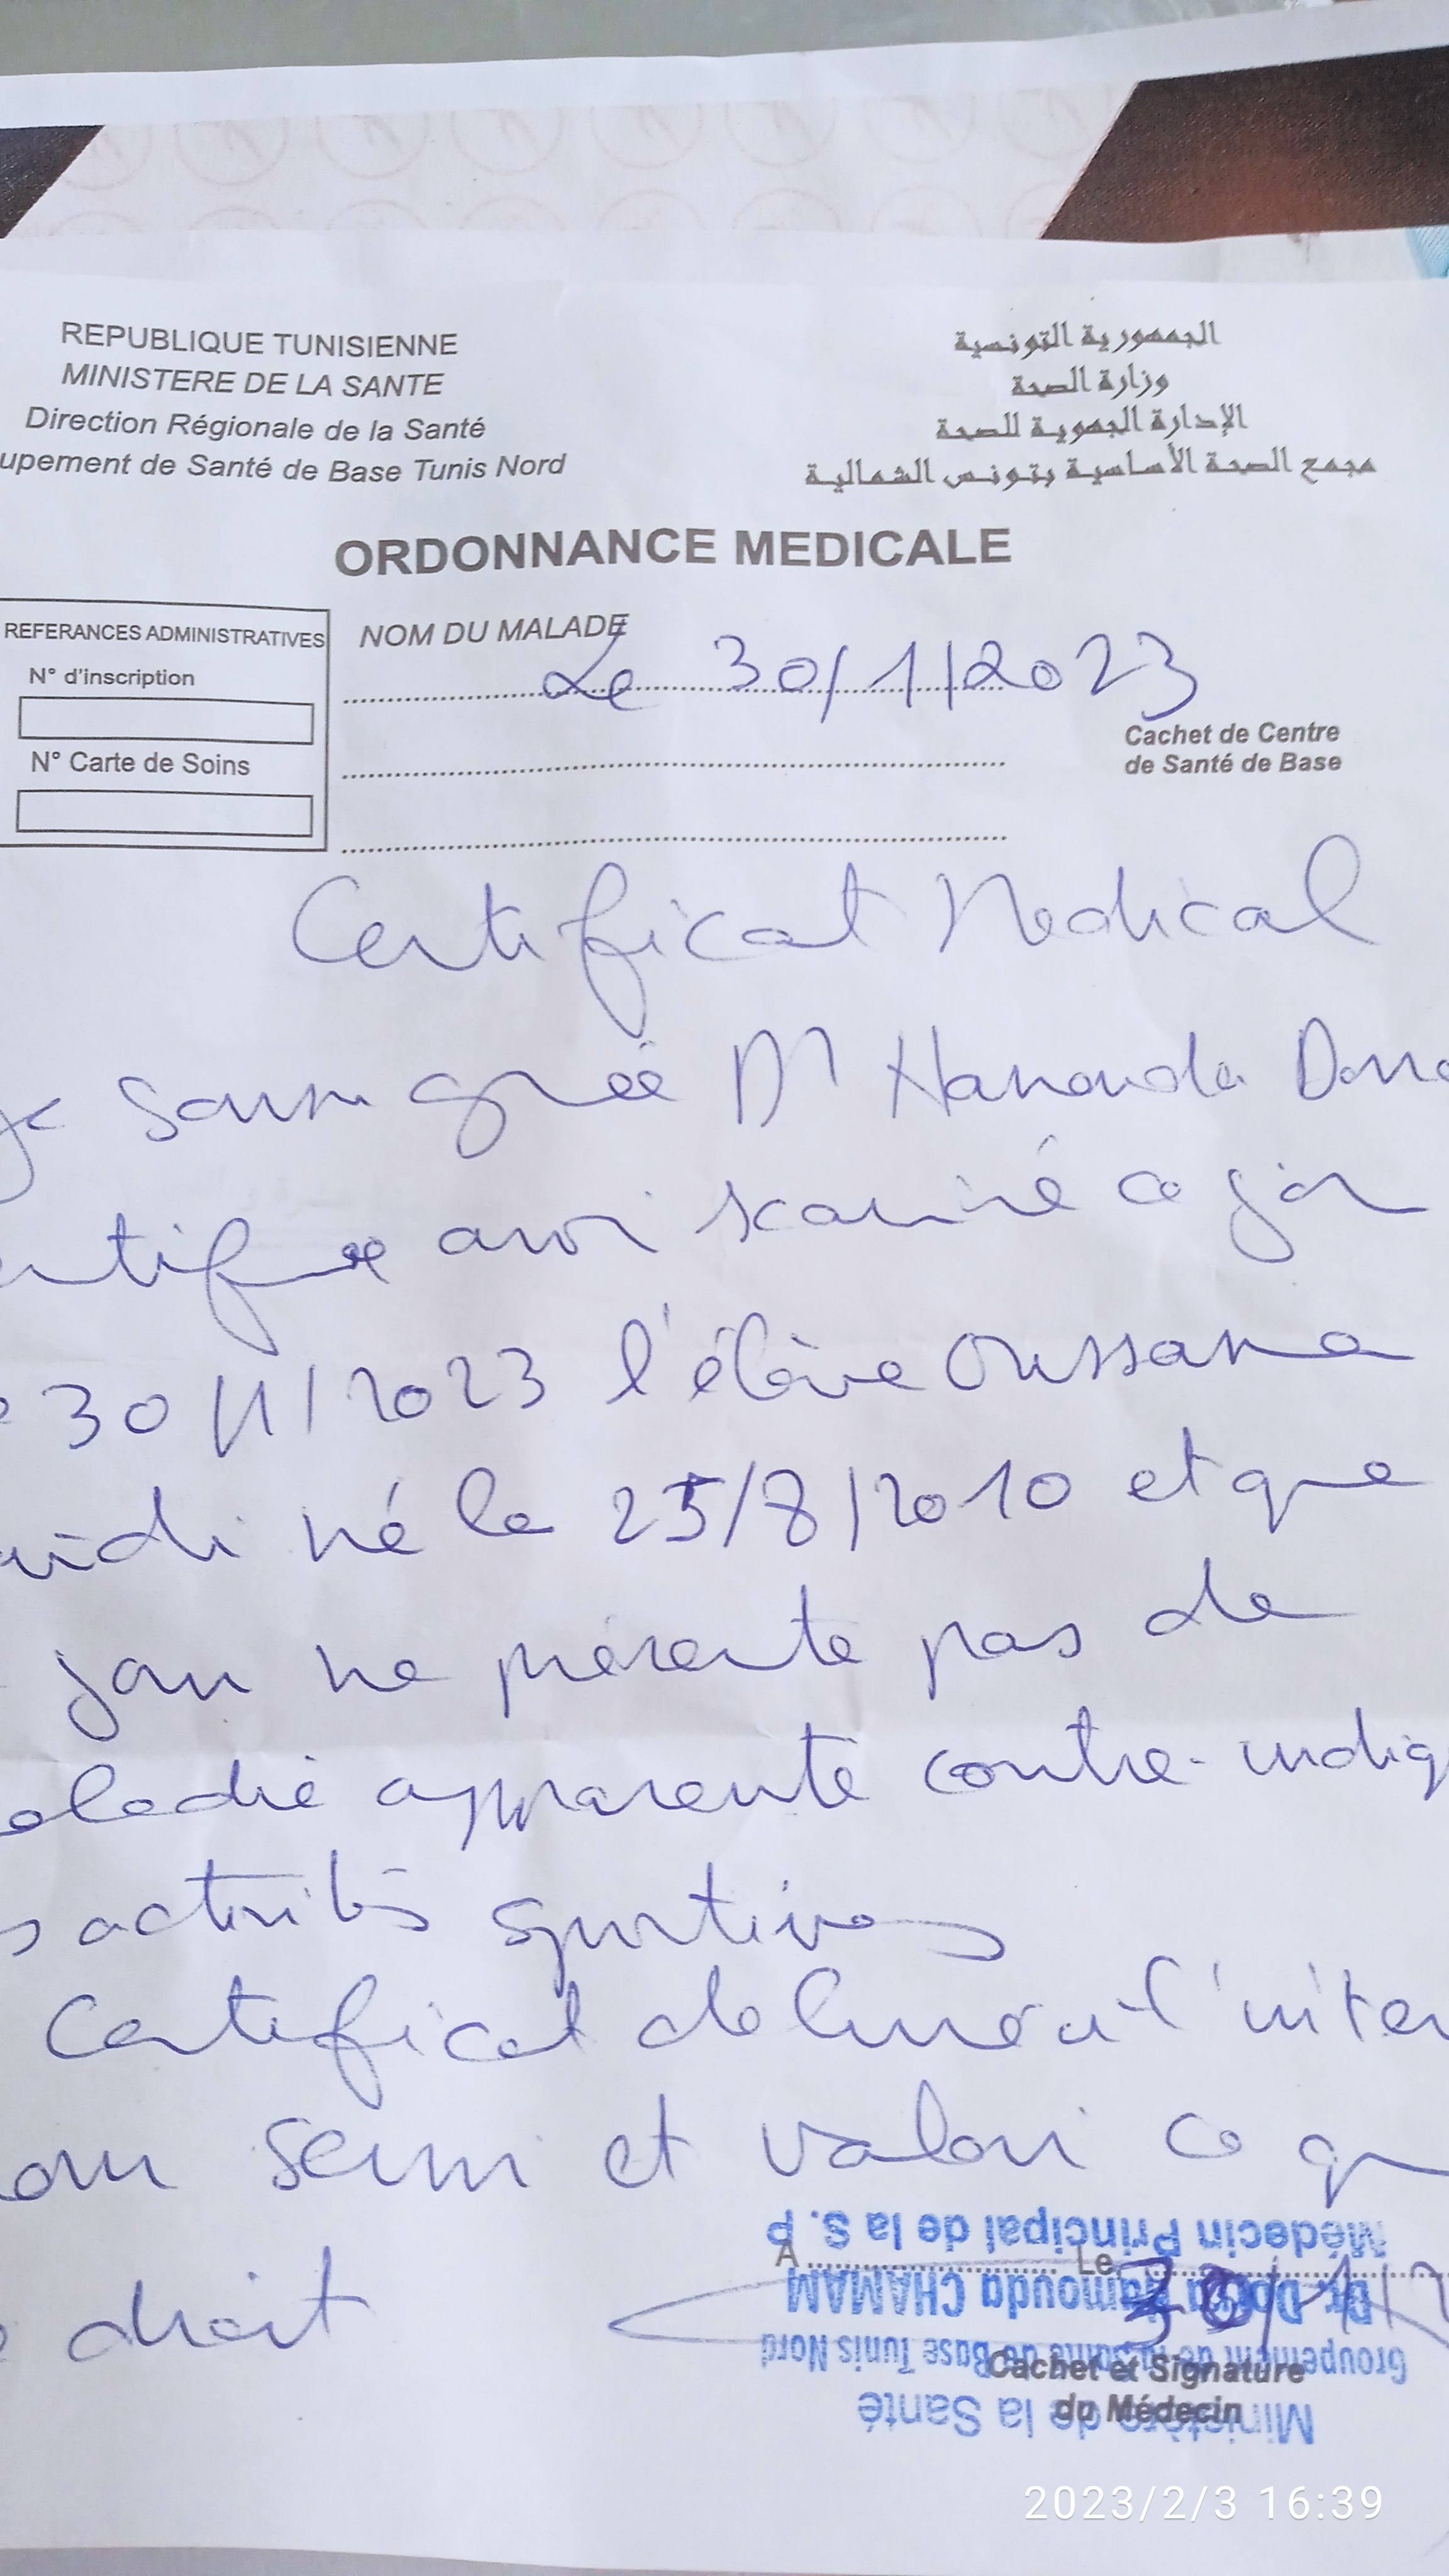 REPUBLIQUE TUNISIENNE
MINISTERE DE LA SANTE
Direction Régionale de la Santé
upement de Santé de Base Tunis Nord
الجمهورية التونسية
وزارة الصحة
الإدارة الجهوية للصحة
مجمع الصحة الأساسية بتونس الشمالية
ORDONNANCE MEDICALE
REFERANCES ADMINISTRATIVES
N° d'inscription
N° Carte de Soins
NOM DU MALADE
Le 30/1/2023
Cachet de Centre
de Santé de Base
Certificat Medical
Dr Hamouda
ce jour
30/1/2023 l'élève Oussama
né le 25/8/2010 et que
jour ne présente pas de
aladie apparente contre-indiq
s activités sportives
Certificat délivré à l'inter
our servir et valoir ce qu
droit
Médecin Principal de la S. P
A Le 30/1/2
Dr. Dorra Hamouda CHAMAM
Groupement de la Santé de Base Tunis Nord
Cachet et Signature
du Médecin
Ministère de la Santé
2023/2/3 16:39